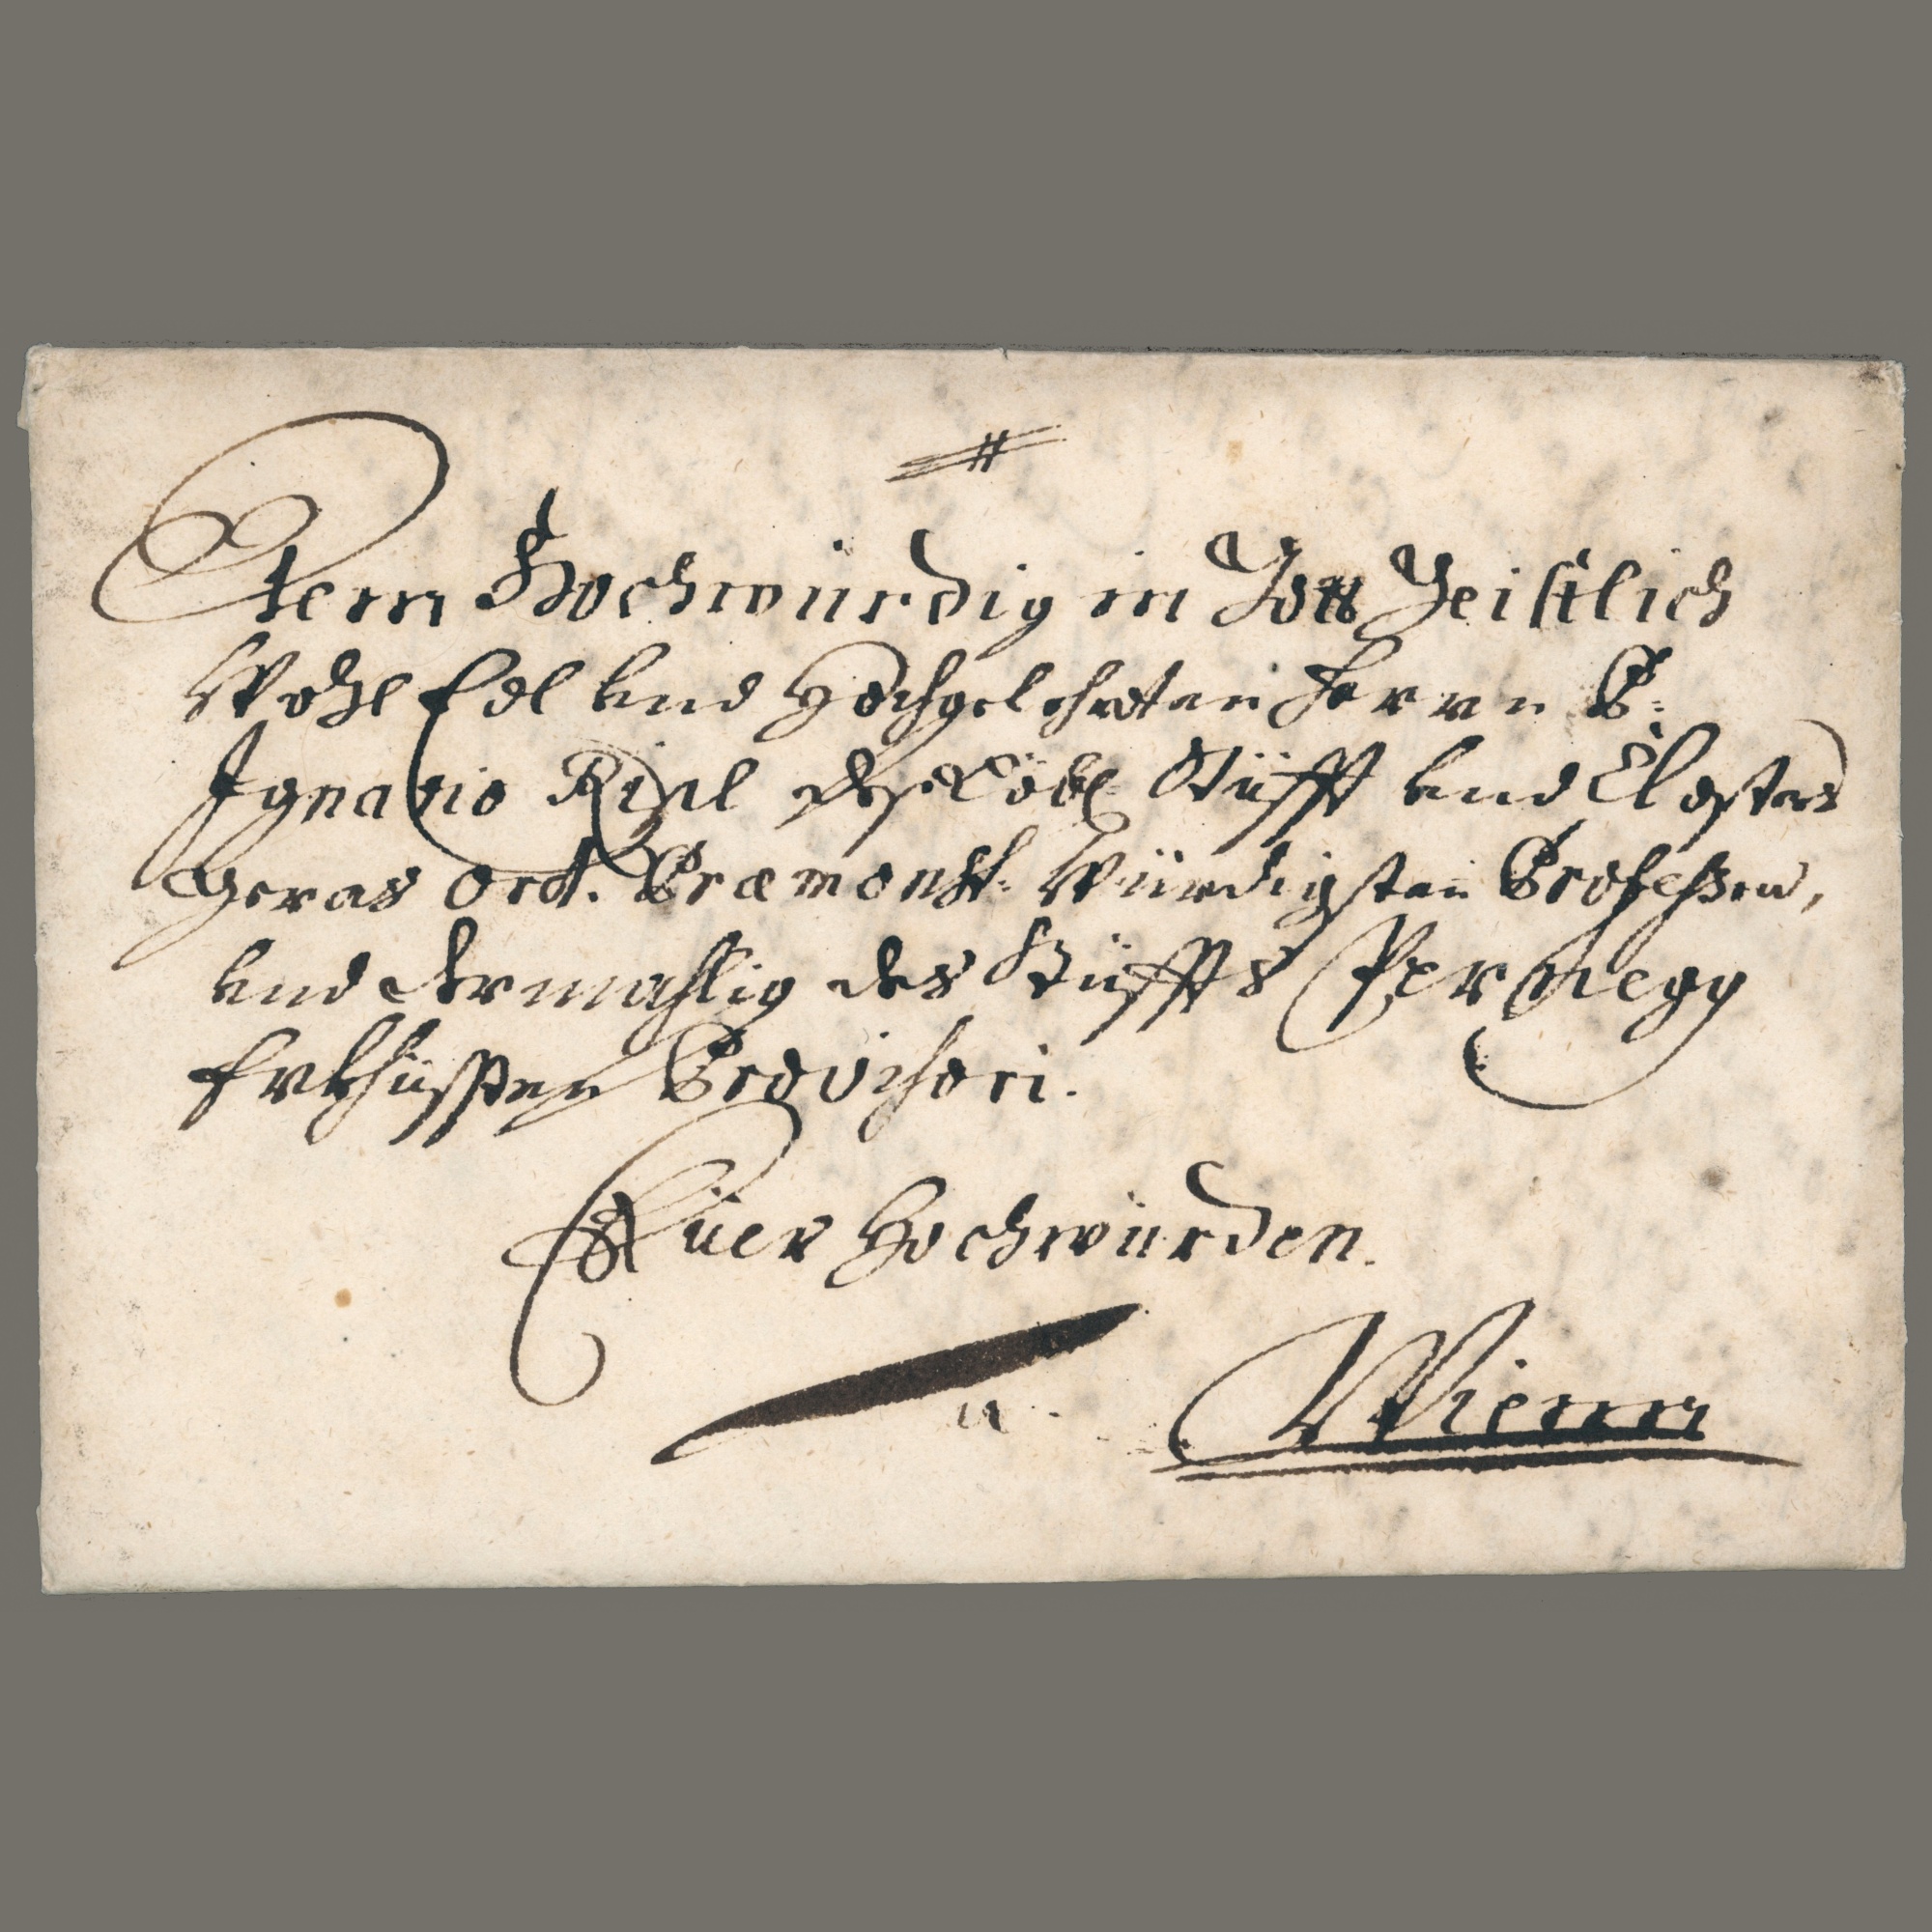 Dem Hochwürdig in Gott Geistlich
Wohl Edl vnd Hochgelehrten Herrn P:
Ignatio Rizl des löbl: Stüfft vnd Closters
Geras Ord. Præmonst: Würdigsten Professen,
vnd dermahlig des Stüffts Pernegg
Provisori.
Euer Hochwürden.
a Wienn